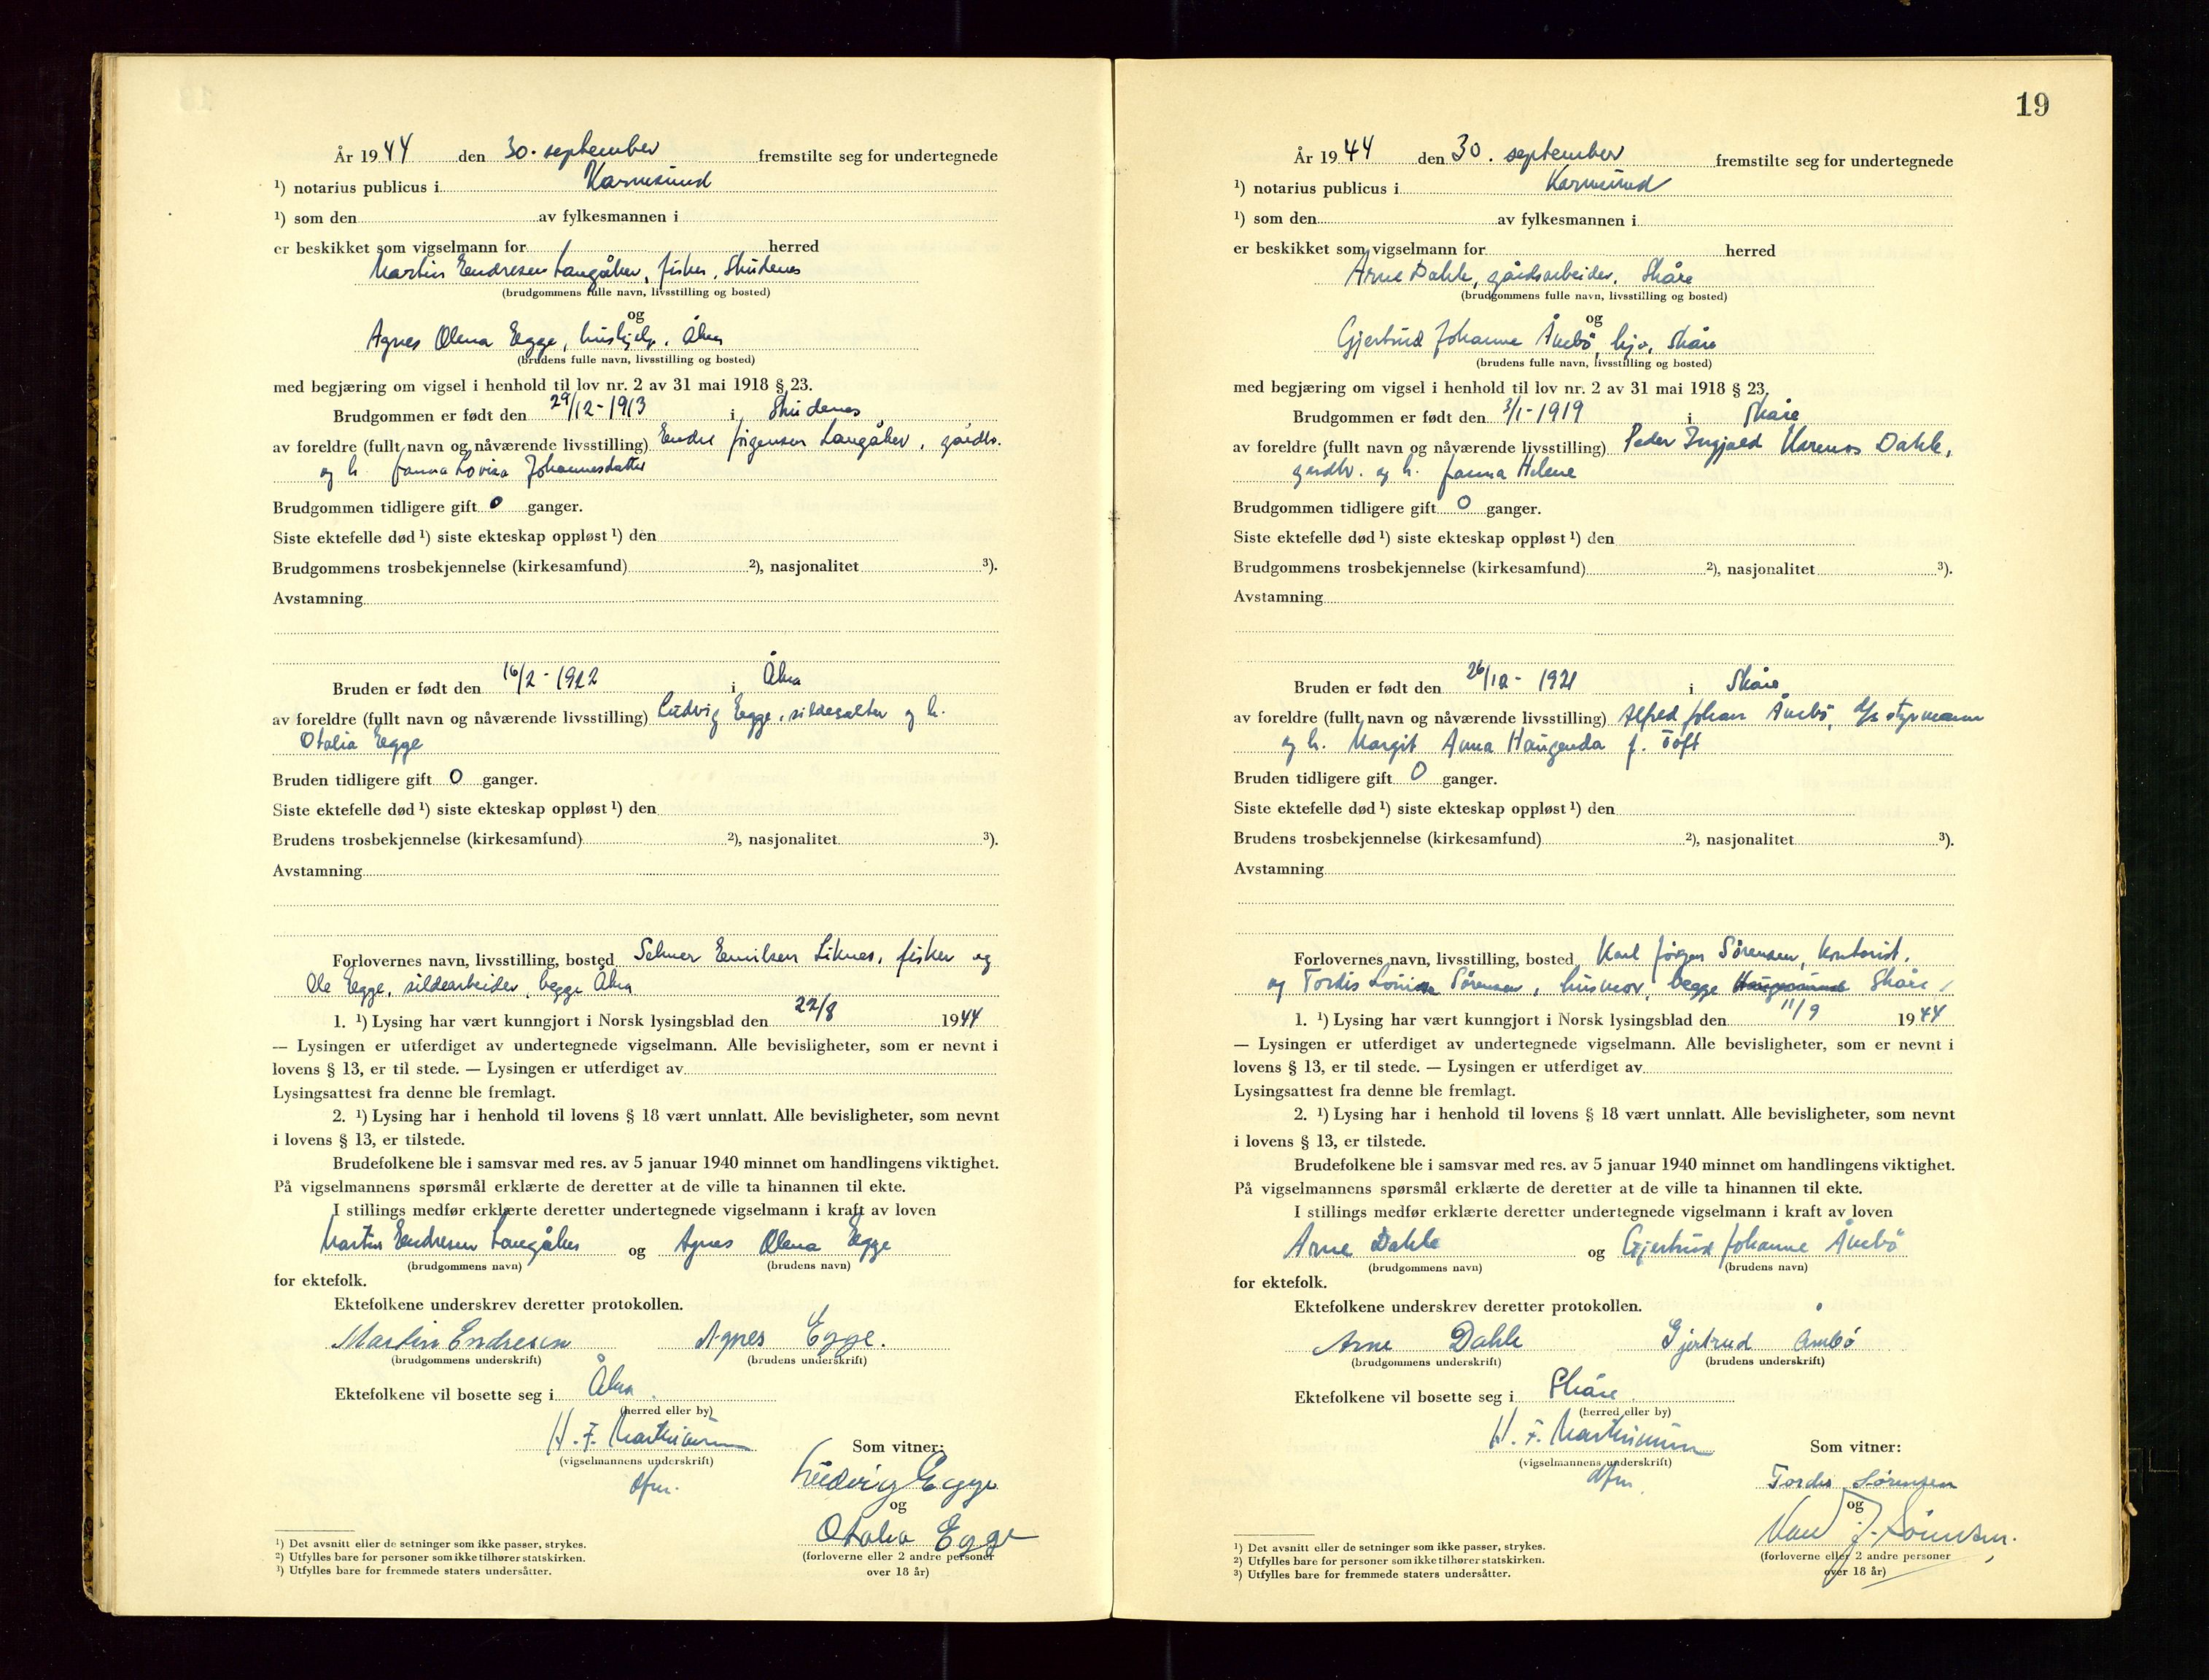 År 1944 den 30. september fremstilte seg for undertegnede
¹) notarius publicus i Karmsund
¹) som den av fylkesmannen i
er beskikket som vigselmann for herred
Martin Endresen Langåker, fisker, Skudenes
(brudgommens fulle navn, livsstilling og bosted)
og
Agnes Olena Egge, hushjelp, Åkra
(brudens fulle navn, livsstilling og bosted)
med begjæring om vigsel i henhold til lov nr. 2 av 31 mai 1918 § 23.
Brudgommen er født den 29/12-1913 i Skudenes
av foreldre (fullt navn og nåværende livsstilling) Endre Jørgensen Langåker, gårdbr.
og h. Janna Lovisa Johannesdatter
Brudgommen tidligere gift 0 ganger.
Siste ektefelle død ¹) siste ekteskap oppløst ¹) den
Brudgommens trosbekjennelse (kirkesamfund) ²), nasjonalitet ³).
Avstamning
Bruden er født den 16/2-1922 i Åkra
av foreldre (fullt navn og nåværende livsstilling) Ludvig Egge, sildesalter og h.
Otalia Egge
Bruden tidligere gift 0 ganger.
Siste ektefelle død ¹) siste ekteskap oppløst ¹) den
Brudens trosbekjennelse (kirkesamfund) ²), nasjonalitet ³).
Avstamning
Forlovernes navn, livsstilling, bosted Selmer Emilsen Liknes, fisker og
Ole Egge, sildearbeider, begge Åkra
1. ¹) Lysing har vært kunngjort i Norsk lysingsblad den 22/8 1944
— Lysingen er utferdiget av undertegnede vigselmann. Alle bevisligheter, som er nevnt i
lovens § 13, er til stede. — Lysingen er utferdiget av
Lysingsattest fra denne ble fremlagt.
2. ¹) Lysing har i henhold til lovens § 18 vært unnlatt. Alle bevisligheter, som nevnt
i lovens § 13, er tilstede.
Brudefolkene ble i samsvar med res. av 5 januar 1940 minnet om handlingens viktighet.
På vigselmannens spørsmål erklærte de deretter at de ville ta hinannen til ekte.
I stillings medfør erklærte deretter undertegnede vigselmann i kraft av loven
Martin Endresen Langåker og Agnes Olena Egge
(brudgommens navn) (brudens navn)
for ektefolk.
Ektefolkene underskrev deretter protokollen.
Martin Endresen Agnes Egge.
(brudgommens underskrift) (brudens underskrift)
Ektefolkene vil bosette seg i Åkra.
(herred eller by)
H. F. Martinsen
(vigselmannens underskrift)
dfm.
Som vitner:
Ludvig Egge
og
Otalia Egge
(forloverne eller 2 andre personer
over 18 år)
¹) Det avsnitt eller de setninger som ikke passer, strykes.
²) Utfylles bare for personer som ikke tilhører statskirken.
³) Utfylles bare for fremmede staters undersåtter.
19
År 1944 den 30. september fremstilte seg for undertegnede
¹) notarius publicus i Karmsund
¹) som den av fylkesmannen i
er beskikket som vigselmann for herred
Arne Dahle, gårdsarbeider, Skåre
(brudgommens fulle navn, livsstilling og bosted)
og
Gjertrud Johanne Åmbö, hjv., Skåre
(brudens fulle navn, livsstilling og bosted)
med begjæring om vigsel i henhold til lov nr. 2 av 31 mai 1918 § 23.
Brudgommen er født den 3/1-1919 i Skåre
av foreldre (fullt navn og nåværende livsstilling) Peder Ingjald Marenus Dahle,
gårdbr. og h. Janna Helene
Brudgommen tidligere gift 0 ganger.
Siste ektefelle død ¹) siste ekteskap oppløst ¹) den
Brudgommens trosbekjennelse (kirkesamfund) ²), nasjonalitet ³).
Avstamning
Bruden er født den 26/12-1921 i Skåre
av foreldre (fullt navn og nåværende livsstilling) Alfred Johan Åmbö, d/s styrmann
og h. Margit Anna Haugenda f. Toft
Bruden tidligere gift 0 ganger.
Siste ektefelle død ¹) siste ekteskap oppløst ¹) den
Brudens trosbekjennelse (kirkesamfund) ²), nasjonalitet ³).
Avstamning
Forlovernes navn, livsstilling, bosted Karl Jörgen Sörensen, kontorist,
og Tordis Louise Sörensen, husmor, begge Haugesund Skåre
1. ¹) Lysing har vært kunngjort i Norsk lysingsblad den 11/9 1944
— Lysingen er utferdiget av undertegnede vigselmann. Alle bevisligheter, som er nevnt i
lovens § 13, er til stede. — Lysingen er utferdiget av
Lysingsattest fra denne ble fremlagt.
2. ¹) Lysing har i henhold til lovens § 18 vært unnlatt. Alle bevisligheter, som nevnt
i lovens § 13, er tilstede.
Brudefolkene ble i samsvar med res. av 5 januar 1940 minnet om handlingens viktighet.
På vigselmannens spørsmål erklærte de deretter at de ville ta hinannen til ekte.
I stillings medfør erklærte deretter undertegnede vigselmann i kraft av loven
Arne Dahle og Gjertrud Johanne Åmbö
(brudgommens navn) (brudens navn)
for ektefolk.
Ektefolkene underskrev deretter protokollen.
Arne Dahle Gjertrud Åmbö
(brudgommens underskrift) (brudens underskrift)
Ektefolkene vil bosette seg i Skåre.
(herred eller by)
H. F. Martinsen
(vigselmannens underskrift)
dfm.
Som vitner:
Tordis Sörensen
og
Karl J. Sörensen.
(forloverne eller 2 andre personer
over 18 år)
¹) Det avsnitt eller de setninger som ikke passer, strykes.
²) Utfylles bare for personer som ikke tilhører statskirken.
³) Utfylles bare for fremmede staters undersåtter.